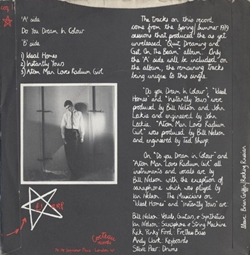 'A' side
Do You Dream In Colour
'B' side
1) Ideal Homes
2) Instantly Yours
3) Atom Man Loves Radium Girl
The tracks on this record
come from the Spring/Summer 1979
sessions that produced the as yet
unreleased "Quit Dreaming and
Get On The Beam" album. Only
the 'A' side will be included on
this album, the remaining tracks
being unique to this single.
"Do you Dream in Colour", "Ideal
Homes" and "Instantly Yours" were
produced by Bill Nelson and John
Leckie and engineered by John
Leckie. "Atom Man Loves Radium
Girl" was produced by Bill Nelson
and engineered by Ted Sharp
On "Do you Dream in Colour" and
"Atom Man Loves Radium Girl" all
instruments and vocals are by
Bill Nelson with the exception of
saxophone which was played by
Ian Nelson. The Musicians on
"Ideal Homes" and "Instantly Yours" are
Bill Nelson Vocals, Guitars, & Synthesizers
Ian Nelson, Saxophone & String Machine
Rick Ford Fretless Bass
Andy Clark Keyboards
Steve Peer Drums
Cocteau
Records